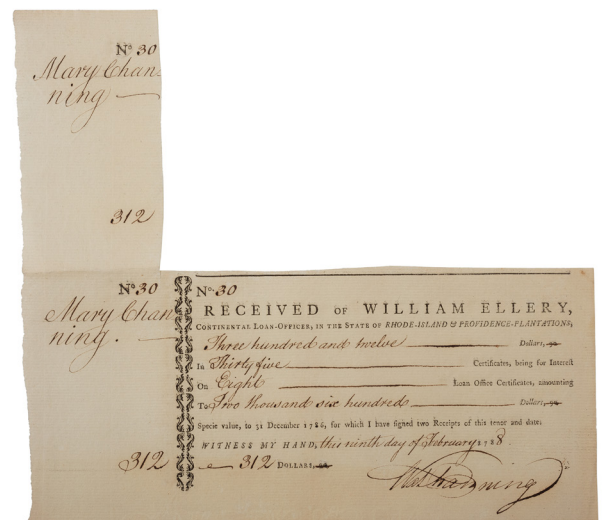 No. 30
Mary Chan-
ning
312
No. 30
Mary Chan
ning.
312
No. 30
RECEIVED OF WILLIAM ELLERY,
CONTINENTAL LOAN-OFFICER, IN THE STATE OF RHODE-ISLAND & PROVIDENCE-PLANTATIONS,
Three hundred and twelve Dollars,
In Thirty five Certificates, being for Interest
On Eight Loan Office Certificates, amounting
To Two thousand six hundred Dollars,
Specie value, to 31 December 1786, for which I have signed two Receipts of this tenor and date:
WITNESS MY HAND, this ninth day of February 1788.
312 DOLLARS,
Channing